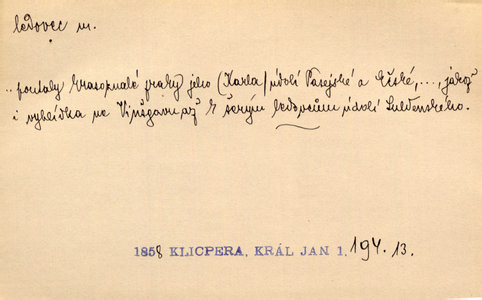 ledovec m.
.. poutaly krasopnaté zraky jeho (Karla) údolí Pasejské a Ečské, ..., jakož
i vyhlídka na Vinšgavu až k šerým ledovcům údolí Suldenského.
1858 KLICPERA, KRÁL JAN 1, 194. 13.